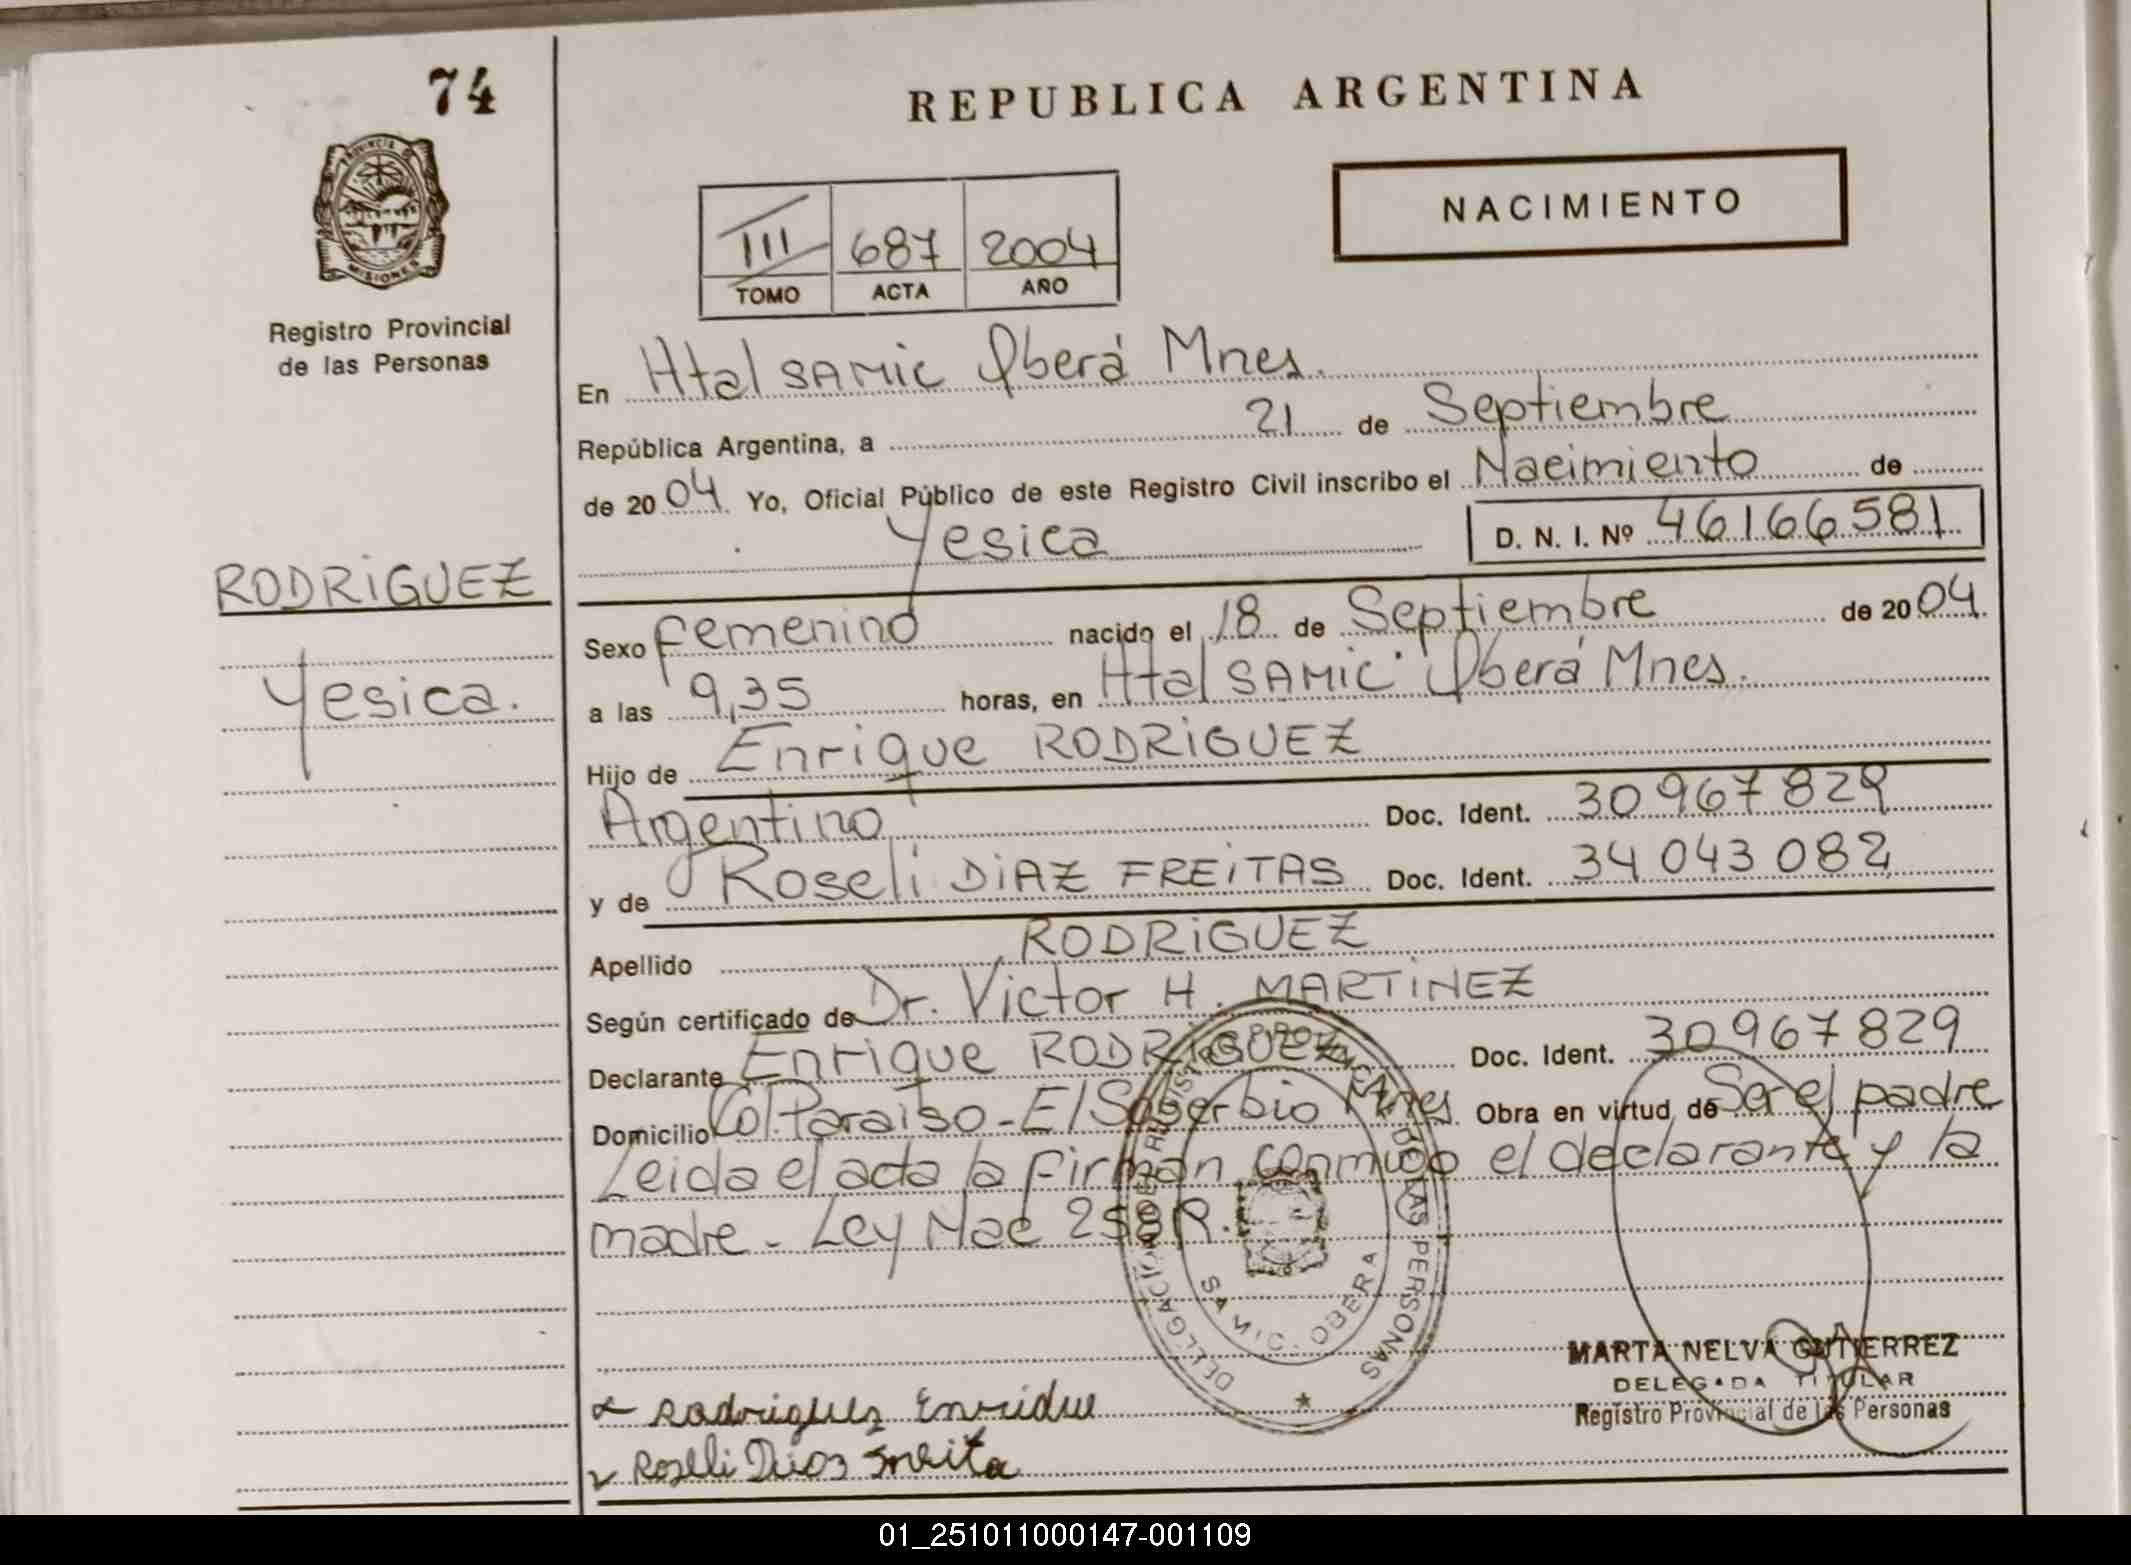 74
REPUBLICA ARGENTINA
PROVINCIA DE
MISIONES
Registro Provincial
de las Personas
NACIMIENTO
III 687 2004
TOMO ACTA AÑO
En Htal SAMIC Oberá Mnes.
República Argentina, a 21 de Septiembre
de 2004. Yo, Oficial Público de este Registro Civil inscribo el Nacimiento de
Yesica D. N. I. Nº 46166581
RODRIGUEZ
Yesica.
Sexo Femenino nacido el 18 de Septiembre de 2004.
a las 9,35 horas, en Htal SAMIC Oberá Mnes.
Hijo de Enrique RODRIGUEZ
Argentino Doc. Ident. 30967829
y de Roseli DIAZ FREITAS Doc. Ident. 34043082
Apellido RODRIGUEZ
Según certificado de Dr. Victor H. MARTINEZ
Declarante Enrique RODRIGUEZ Doc. Ident. 30967829
Domicilio Col. Paraiso - El Soberbio Mnes Obra en virtud de Ser el padre
Leida el acta la firman conmigo el declarante y la
madre - Ley Nac
DELEGACION REGISTRO PROVINCIAL DE LAS PERSONAS
SAMIC - OBERA
MARTA NELVA GUTIERREZ
DELEGADA TITULAR
Registro Provincial de las Personas
Rodriguez Enridue
Roselli
01_251011000147-001109